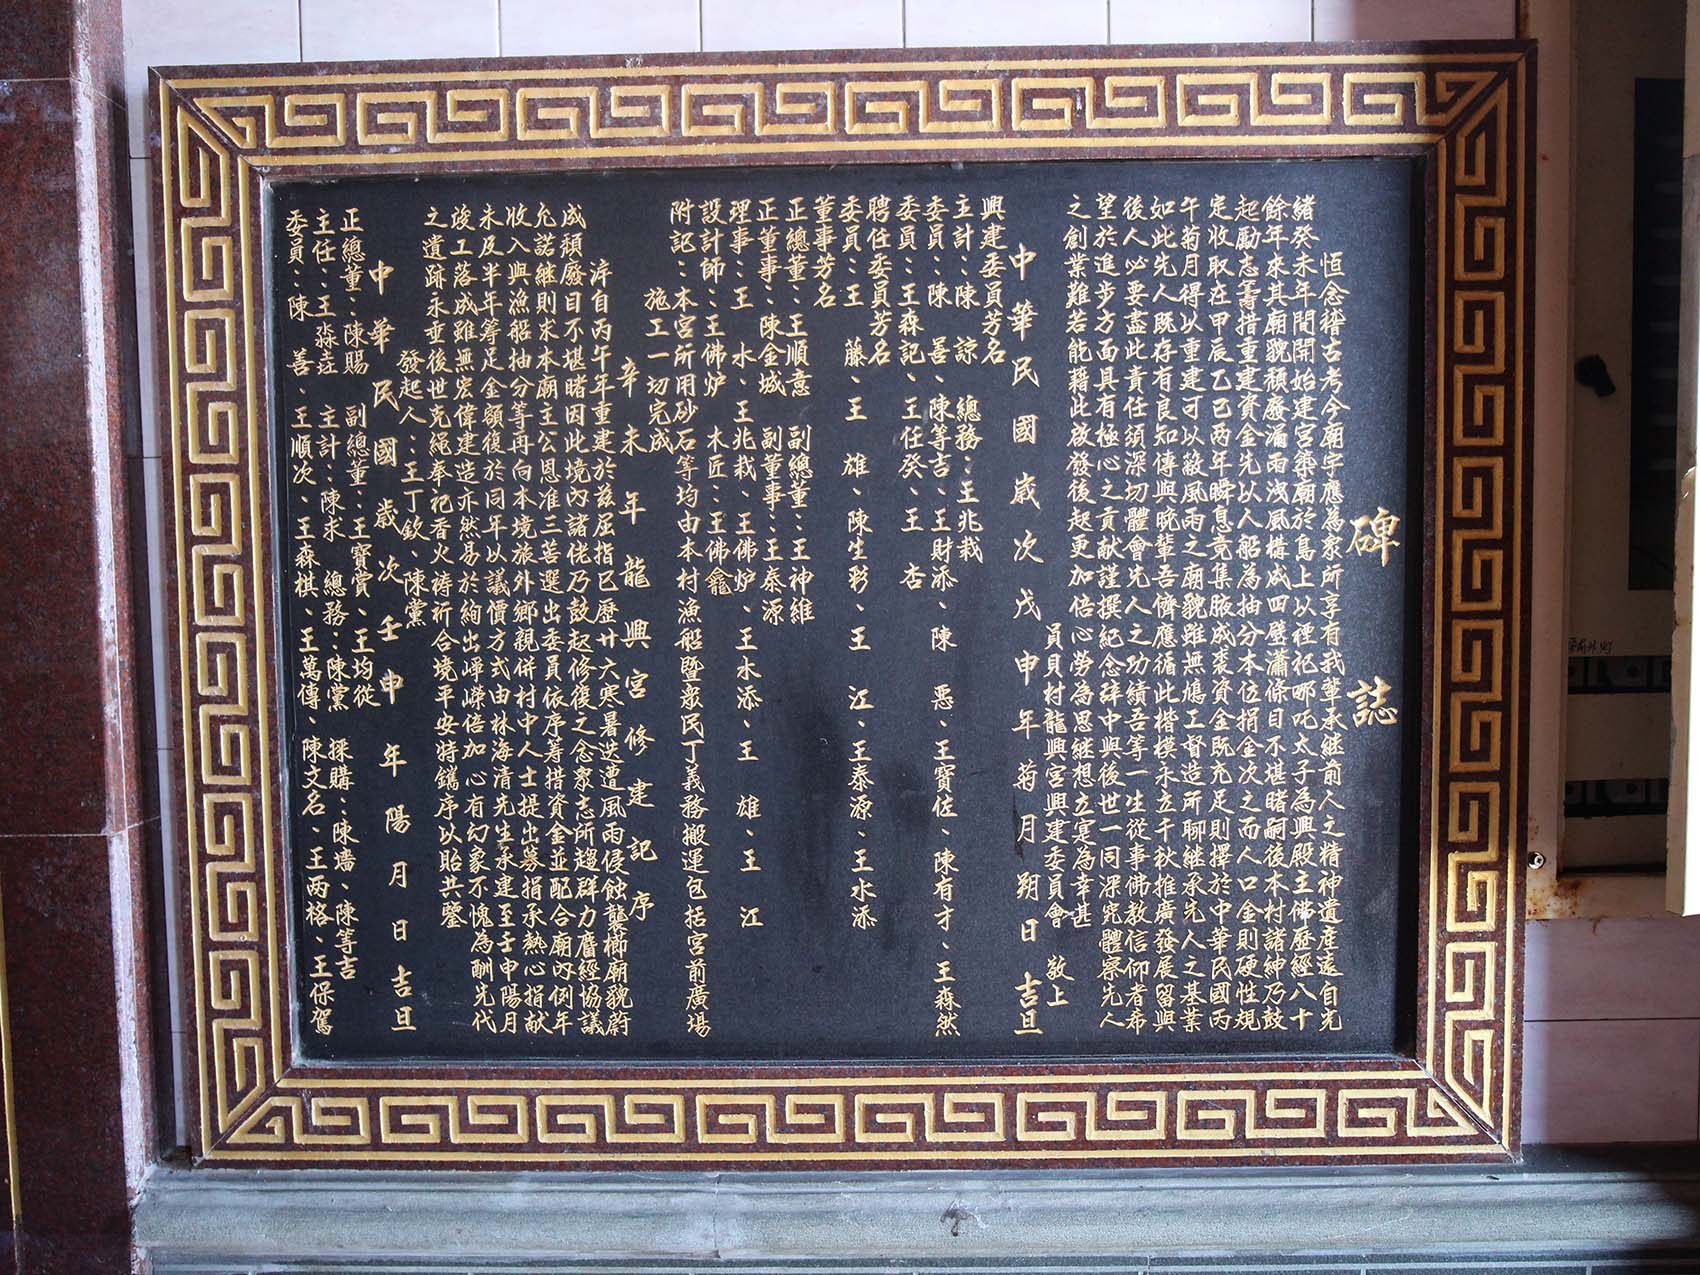 碑誌
恒念稽古考今廟宇應為眾所享有我輩承繼前人之精神遺產遠自光
緒癸未年間開始建宮築廟於島上以徑祀哪吒太子為興殿主佛歷經八十
餘年來其廟貌頹廢漏雨洩風構成四壁瀟條目不堪睹嗣後本村諸紳乃鼓
起勵志籌措重建資金先以人船為抽分本位捐金次之而人口金則硬性規
定收取在甲辰乙巳兩年瞬息竟集腋成裘資金既充足則擇於中華民國丙
午菊月得以重建可以蔽風雨之廟貌雖無鳩工督造所聊繼承先人之基業
如此先人既存有良知傳與晚輩吾儕應循此楷模永立千秋推廣發展留與
後人必要盡此責任須深切體會先人之功績吾等一生從事佛教信仰者希
望於進步方面具有極心之貢献謹撰紀念碑中與後世一同深究體察先人
之創業難若能藉此啟發後起更加倍心勞為思繼想立寞為幸甚
員貝村龍興宮興建委員會 敬上
中華民國歲次戊申年菊月朔日吉旦
興建委員芳名
主計：陳 諒 總務：王兆栽
委員：陳 善、陳等吉、王財添、陳 惡、王寶佐、陳有才、王森然
委員：王森記、王任癸、王 杏
聘任委員芳名
委員：王 藤、王 雄、陳生彩、王 江、王泰源、王水添
董事芳名
正總董：王順意 副總董：王神維
正董事：陳金城 副董事：王泰源
理事：王 水、王兆栽、王佛炉、王水添、王 雄、王 江
設計師：王佛炉 木匠：王佛龕
附記：本宮所用砂石等均由本村漁船暨眾民丁義務搬運包括宮前廣場
施工一切完成
辛未年龍興宮修建記序
溶自丙午年重建於茲屈指已歷廿六寒暑迭遭風雨侵蝕襲櫛廟貌蔚
成頹廢目不堪睹因此境內諸佬乃鼓起修復之念眾志所趨群力膺經協議
允諾繼則求本廟主公恩准三苦選出委員依序籌措資金並配合廟內例年
收入與漁船抽分等再向本境旅外鄉親併村中人士提出募捐承熱心捐献
未及半年籌足金額復於同年以議價方式由林海清先生承建至壬申陽月
竣工落成雖無宏偉建造亦然易於絢出嶂嶸倍加心有幻象不愧為酬先代
之遺跡永垂後世克繩奉祀香火禱祈合境平安特鐫序以貽共鑒
發起人：王丁欽、陳黨
中華民國歲次壬申年陽月日吉旦
正總董：陳賜 副總董：王寶賞、王均從
主任：王淼垚 主計：陳求 總務：陳黨 採購：陳墻、陳等吉
委員：陳 善、王順次、王森棋、王萬傳、陳文名、王兩格、王保駕